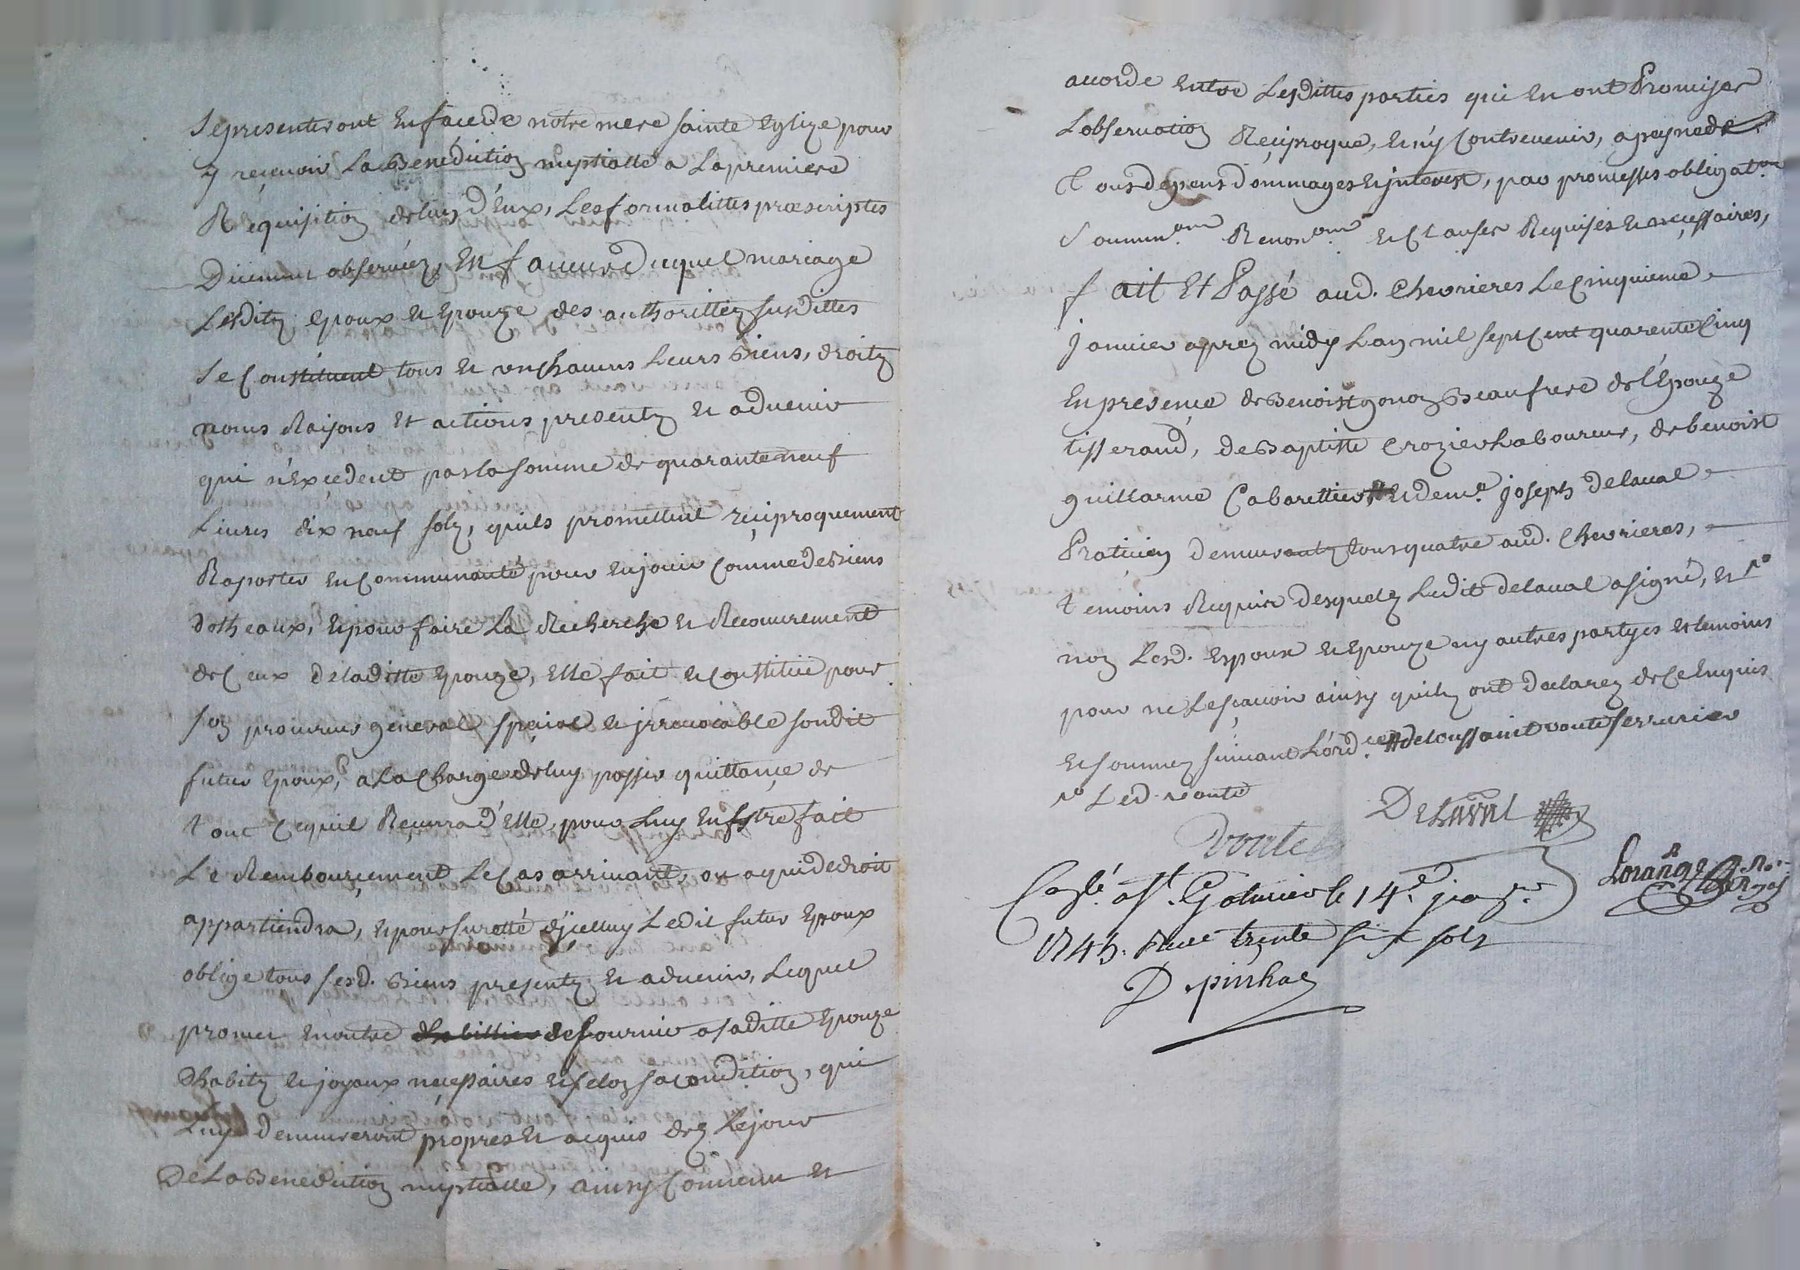 se presenteront en face de notre mere sainte eglize pour
y reçevoir La Benediction nuptialle a La premiere
Requisition de lun d'Eux, Les formalittés præscriptes
Duëment observéez, En faveur Duquel mariage
Lesditz epoux et epouze des authorittéz susdittes
se Constituent tous et un chacuns Leurs Biens, droitz
noms Raisons et actions presentz et advenir
qui n'Excedent pas la somme de quarante neuf
Livres dix neuf solz, quils promettent reçiproquement
Raporter en Communauté pour en jouir Comme de Biens
dotheaux, et pour faire La Recherche et Recouvrement
de Ceux de laditte Epouze, Elle fait et Constitue pour
son procureur general speçial et jrrevocable sondit
futur epoux, a La Charge de luy passer quittançe de
tout Ce quil Recevra d'Elle, pour Luy En Estre fait
Le Remboursement Le Cas arrivant, ou a qui de droit
appartiendra, et pour suretté dyçelluy Ledit futur Epoux
oblige tous sesd. Biens presentz et advenir, Lequel
promet En outre de fournir a saditte Epouze
Dhabitz et joyaux neçessaires et selon sa Condition, qui
Luy demeureront propres et acquis dez Le jour
De La Benediction nuptialle, ainsy Convenu et
accordé Entre Lesdittes parties qui En ont Promiser
Lobservation Reçiproque, et n'y Contrevenir, a peyne de
tous depens dommages et jnterest, par promesses obligat.on
soumm.ons Renon.ons et Clauses Requises et neçessaires,
fait Et Passé aud. Chevrieres Le Cinquieme
janvier aprez midy Lan mil sept Cent quarente Cinq
En presence de Benoist gonon Beaufrere de l'Epouze
tisserand, de Baptiste Crozier Laboureur, de benoist
guillarme Cabarettier # Et de me. joseph delaval
Pratiçien demeurantz tous quatre aud. Chevrieres,
témoins Requis desquelz Ledit delaval a signé, et no
non Lesd. Espoux et Epouze ny autres partyes et temoins
pour ne Le sçavoir ainsy quilz ont declarez de Ce Enquis
et sommez suivant L'ord.ce # de toussaint voute serrurier
Led. voute
Delaval
Voute
Lorange No.re Royal
Con.lé a St. Galmier le 14.e janv.er
1745. Reçu trente six sols
Depinhac